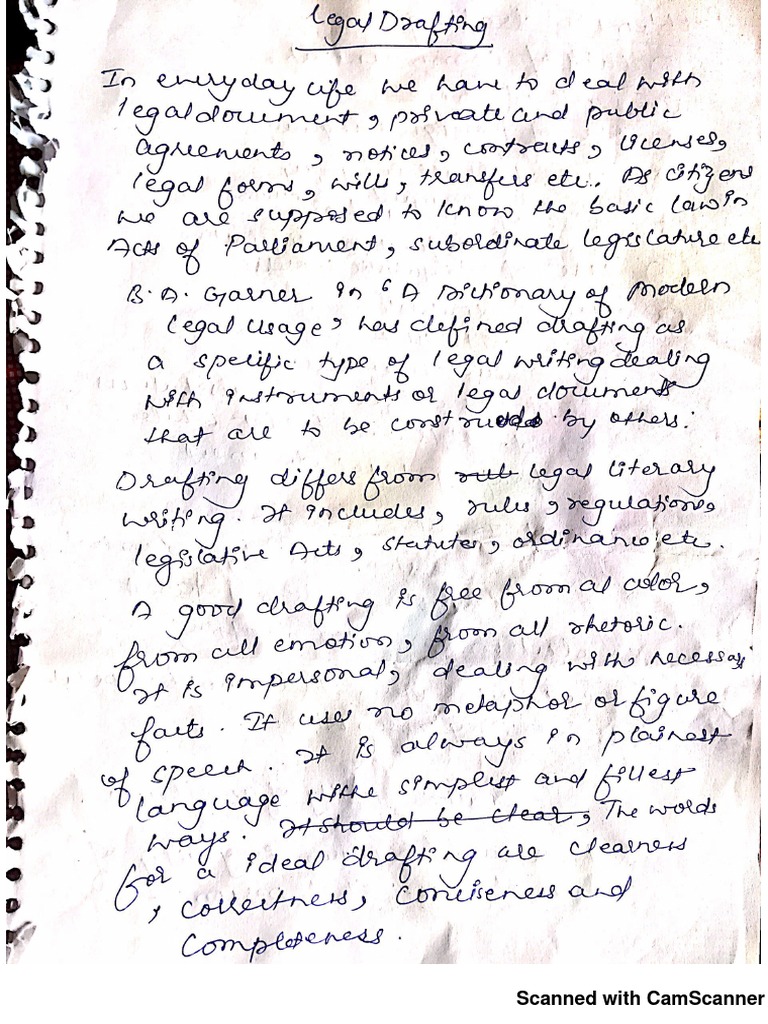 Legal Drafting
In everyday life we have to deal with
legal document, private and public
agreements, notices, contracts, licenses,
legal forms, wills, transfers etc. As citizens
we are supposed to know the basic law in
Acts of Parliament, subordinate legislature etc
B.A. Garner in 'A Dictionary of Modern
legal usage' has defined drafting as
a specific type of legal writing dealing
with instruments or legal documents
that are to be by others.
Drafting differs from legal literary
writing. It includes, rules, regulations,
legislative Acts, statutes, ordinance etc.
A good drafting is free from al color,
from all emotion, from all rhetoric.
It is impersonal, dealing with necessary
facts. It uses no metaphor or figure
of speech. It is always in plainest
language with simplest and fillest
ways. It should be clear, The words
for a ideal drafting are clearness
, correctness, conciseness and
completeness.
Scanned with CamScanner